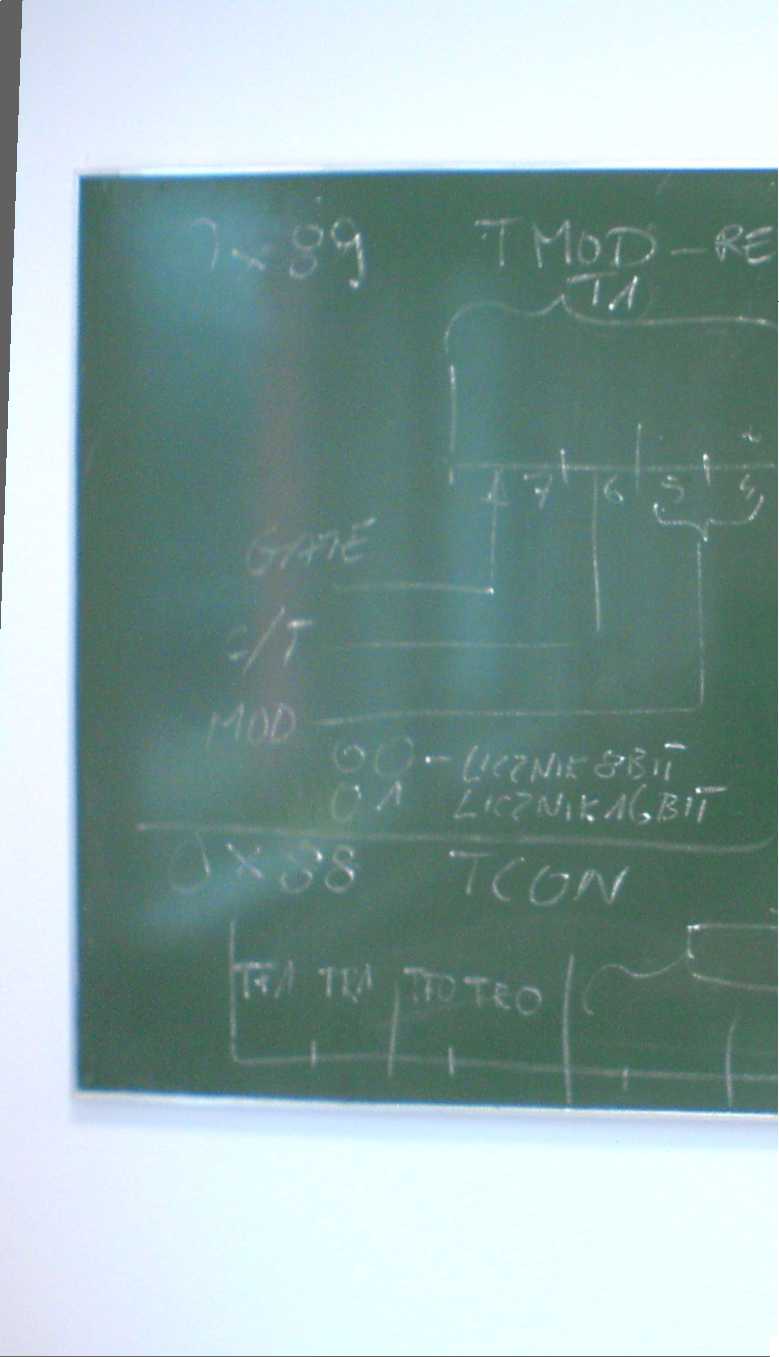 0x89 TMOD - RE
T1
7 6 5 4
GATE
C/T
MOD
00 - LICZNIK 8BIT
01 LICZNIK 16BIT
0x88 TCON
TF1 TR1 TF0 TR0